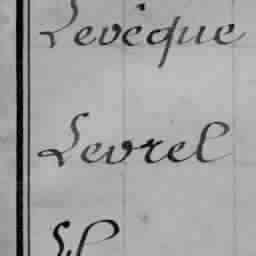 Levêque
Levrel